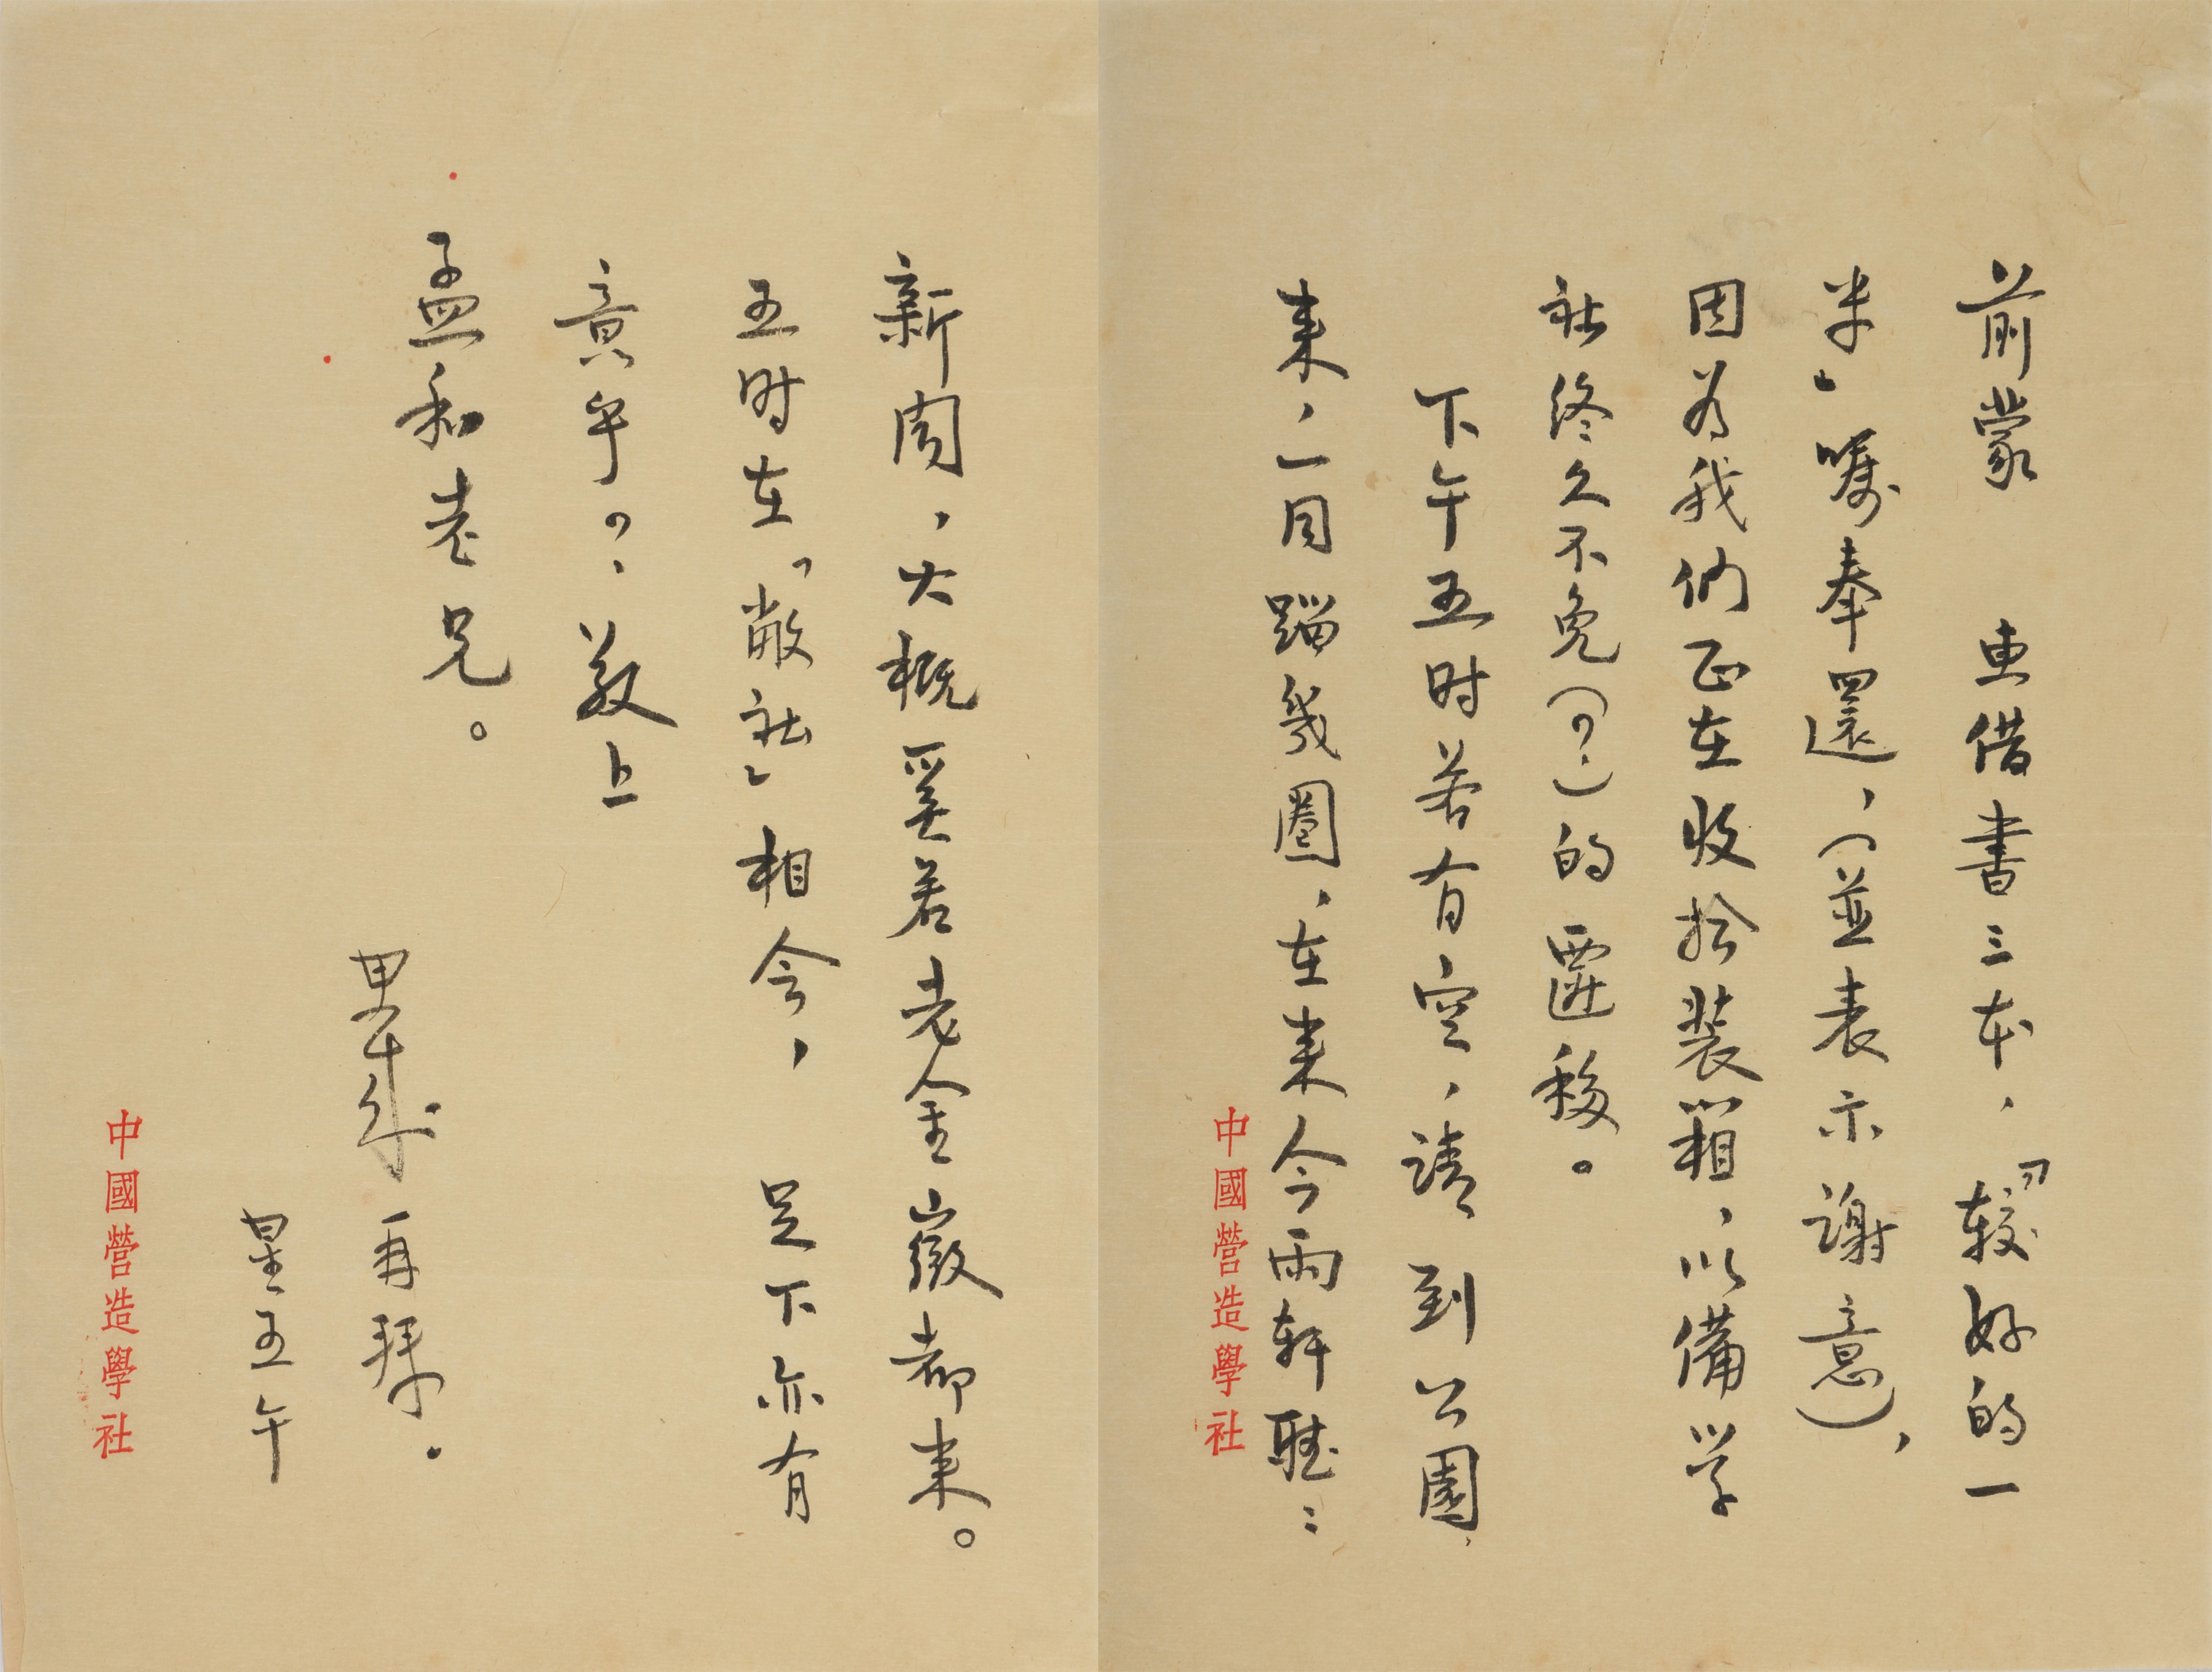 前蒙 惠借書三本，「較好的一
半」囑奉還，（並表示謝意），
因为我们正在收拾装箱，以備学
社终久不免（？）的遷移。
下午五时若有空，請到公園
来，一同蹓幾圈，在来今雨轩聴聴
中國營造學社
新闻，大概奚若老金徽都来。
五时在「敝社」相会， 足下亦有
意乎？敬上
孟和老兄。
思成 再拜．
星五午
中國營造學社